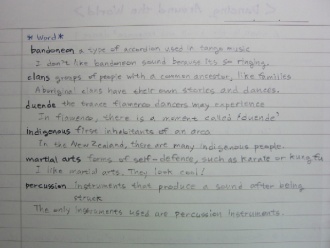 * Word *
bandoneon a type of accordion used in tango music
I don't like bandoneon sound because its so ringing.
clans groups of people with a common ancestor, like families
Aboriginal clans have their own stories and dances.
duende the trance flamenco dancers may experience
In flamenco, there is a moment called "duende"
Indigenous first inhabitants of an area
In the New Zealand, there are many indigenous people.
martial arts forms of self-defence, such as karate or kung fu
I like martial arts. They look cool!
percussion instruments that produce a sound after being
struck
The only instruments used are percussion instruments.